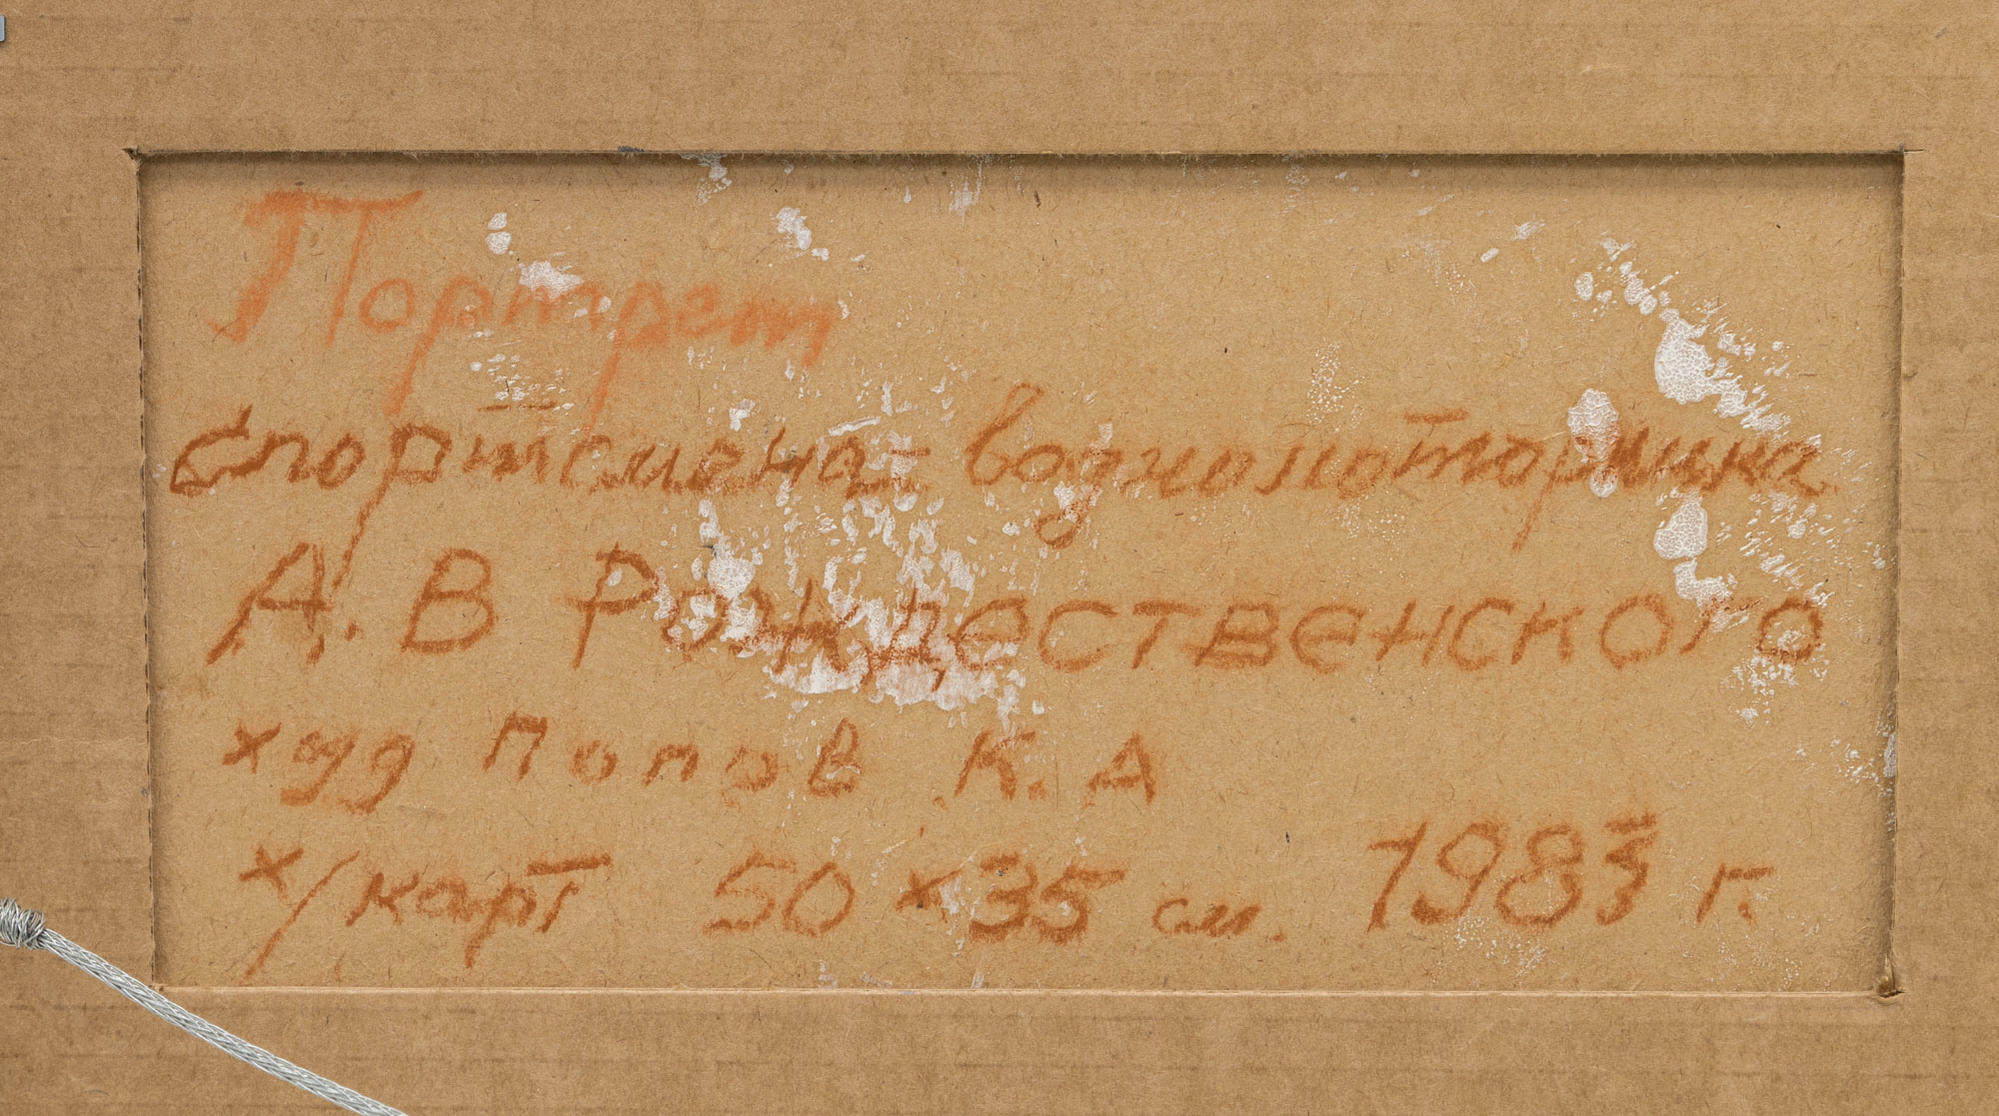 Портрет
спортсмена-водномоторника
А. В Рождественского
худ Попов К. А
х/карт 50 x 35 см. 1983 г.